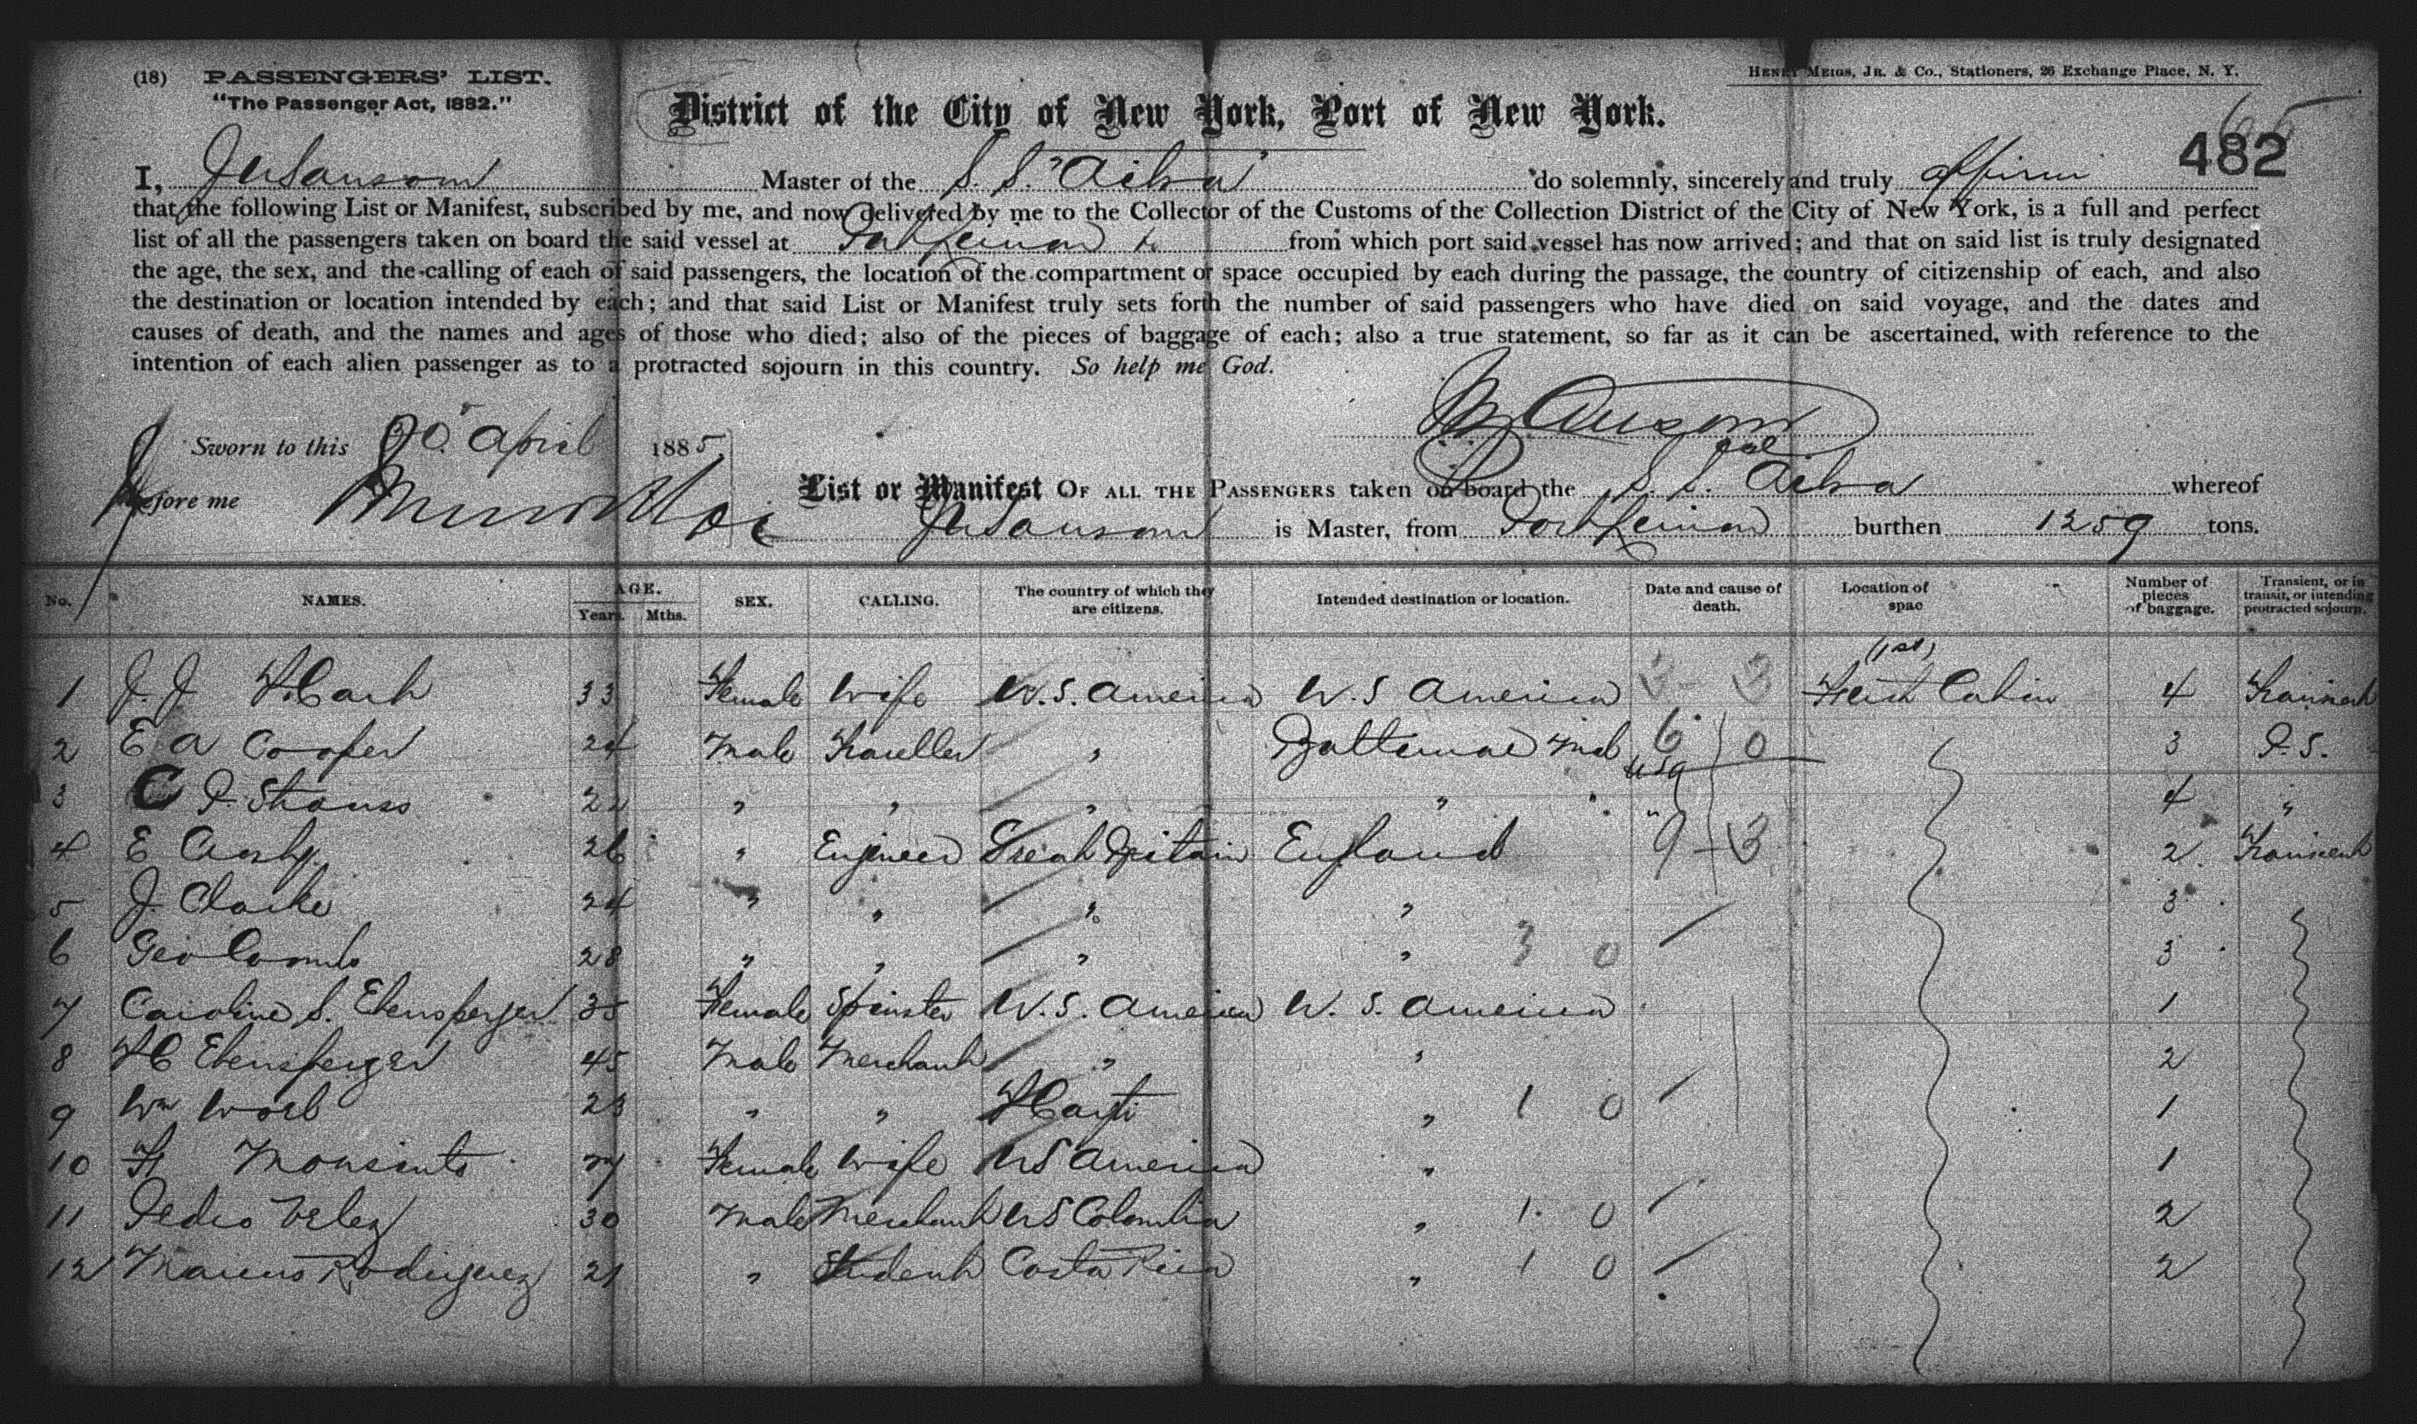 (18) PASSENGERS' LIST.
"The Passenger Act, 1882."
HENRY MEIGS, JR. & CO., Stationers, 26 Exchange Place, N. Y.
District of the City of New York, Port of New York.
65
482
I, J W Sansom Master of the S. S. "Ailsa" do solemnly, sincerely and truly affirm
that the following List or Manifest, subscribed by me, and now delivered by me to the Collector of the Customs of the Collection District of the City of New York, is a full and perfect
list of all the passengers taken on board the said vessel at Port Limon from which port said vessel has now arrived; and that on said list is truly designated
the age, the sex, and the calling of each of said passengers, the location of the compartment or space occupied by each during the passage, the country of citizenship of each, and also
the destination or location intended by each; and that said List or Manifest truly sets forth the number of said passengers who have died on said voyage, and the dates and
causes of death, and the names and ages of those who died; also of the pieces of baggage of each; also a true statement, so far as it can be ascertained, with reference to the
intention of each alien passenger as to a protracted sojourn in this country. So help me God.
Sworn to this 20 April 1885
Before me
List or Manifest OF ALL THE PASSENGERS taken on board the S. S. Ailsa whereof
J W Sansom is Master, from Port Limon burthen 1259 tons.
No. NAMES. AGE. Years. Mths. SEX. CALLING. The country of which they are citizens. Intended destination or location. Date and cause of death. Location of spac Number of pieces of baggage. Transient, or in transit, or intending protracted sojourn.
1 J. J. 33 Female Wife U.S. America U. S America 3 - 3 (1st) First Cabin 4 Transient
2 E A Cooper 24 Male Traveller " Baltimore Md USA 6 0 3 P. S.
3 C P. Strauss 22 " " " " " 4 "
4 E 26 " Engineer Great Britain England 9 - 3 2 Transient
5 J. Clarke 24 " " " " 3
6 Geo Coombs 28 " " " " 3 0 3
7 Caroline S. Ebensperger 35 Female Spinster U. S. America U. S. America 1
8 H C Ebensperger 45 Male Merchant " " 2
9 Wm 23 " " Hayti " 1 0 1
10 H Monsanto 27 Female Wife US America " 1
11 Pedro Velez 30 Male Merchant US Colombia " 1 0 2
12 Marcus Rodriguez 21 " Student Costa Rica " 1 0 2